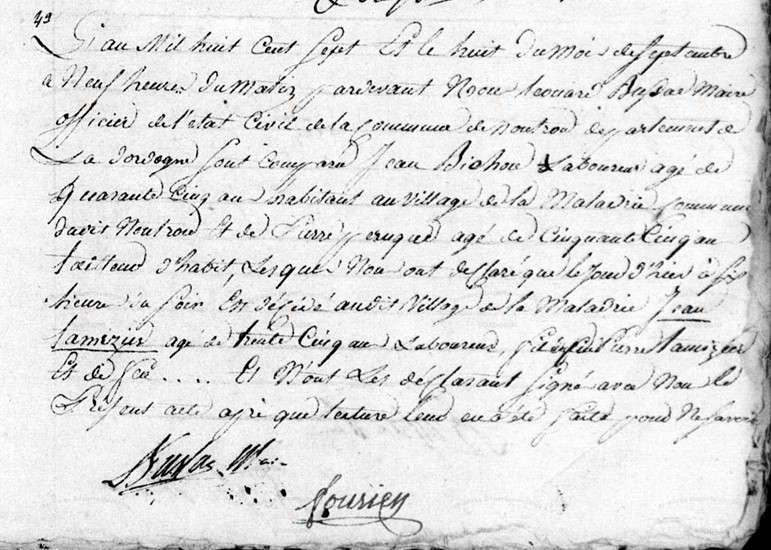 49
L'an Mil huit Cent Sept Et le huit du moi de Septembre
a Neuf heures du Matin pardevant Nous leonard Maire
officier de l'etat Civil de la Commune de nontron departement de
La dordogne Sont Comparu Jean Bichon Laboureur agé de
quarante Cinq an habitant au village de la Maladrie Commune
dudit Nontron Et de Pierre peruque agé de Cinquante Cinq an
tailleur d'habit, Lesque Nou ont desClaré que le Jour d'hier à Six
heure du Soir Est décédé audit Village de la Maladrie Jean
Lamizier agé de trente Cinq an Laboureur, Pierre Lamizier
Et de feu .... Et N'ont Les désClarant Signé avec Nou le
Présent acte aprè que lecture leur en a été faite pour Ne Savoir